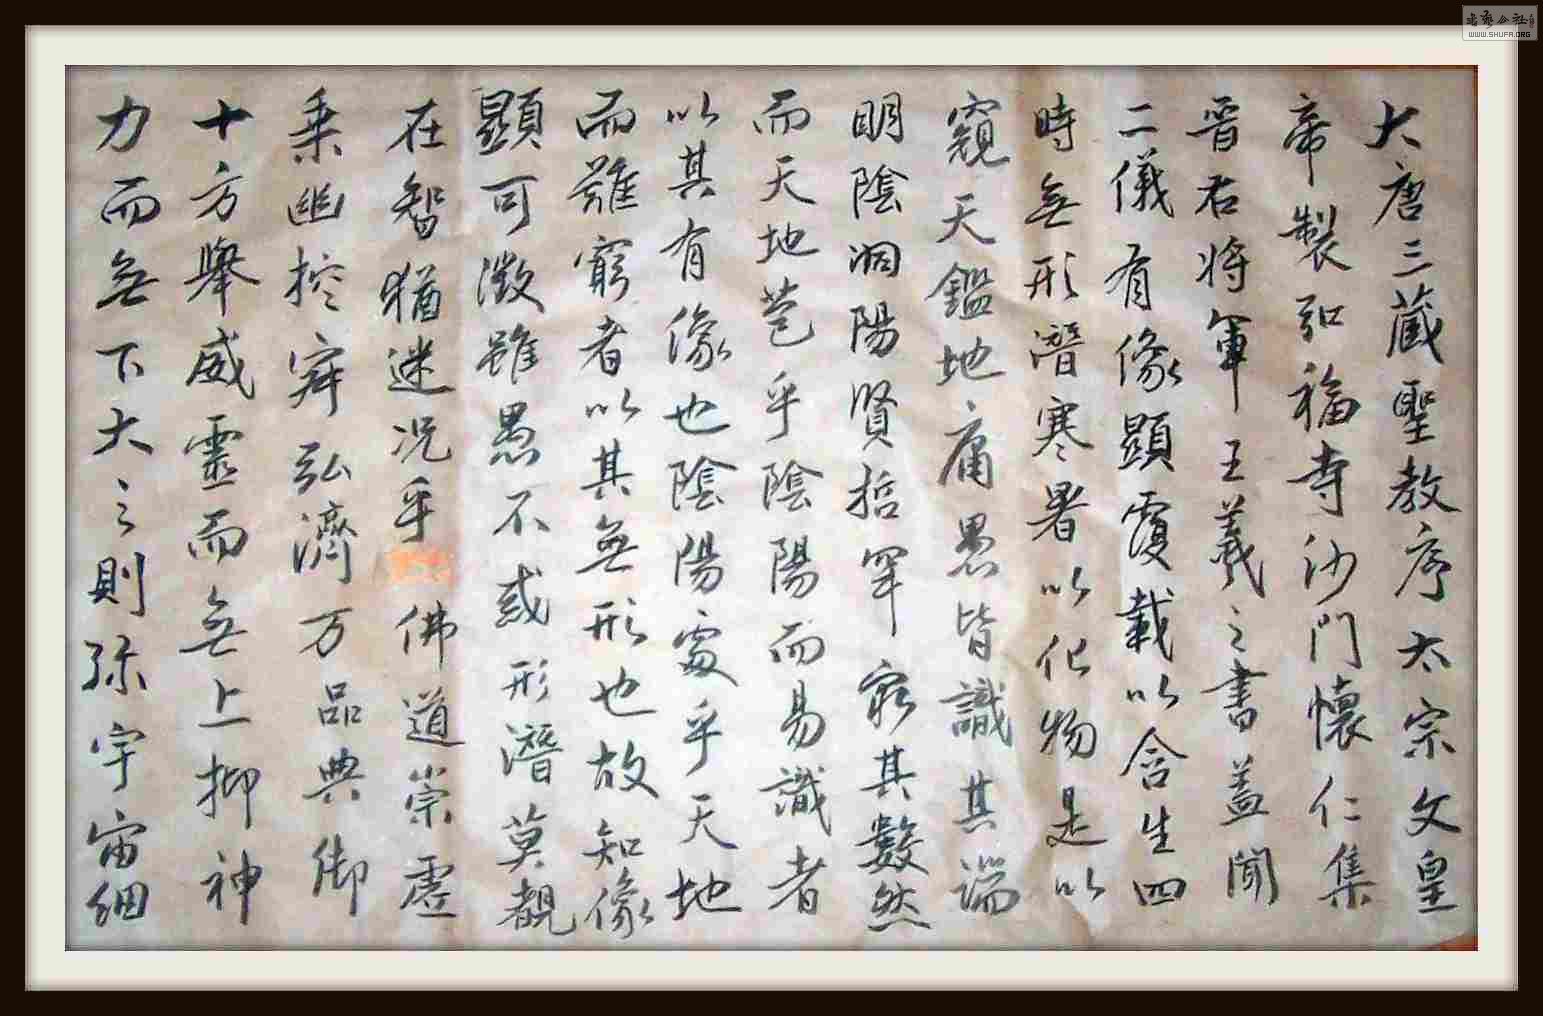 大唐三藏聖教序太宗文皇
帝製弘福寺沙門懷仁集
晉右將軍王羲之書蓋聞
二儀有像顯覆載以含生四
時無形潛寒暑以化物是以
窺天鑑地庸愚皆識其端
明陰洞陽賢哲罕窮其數然
而天地苞乎陰陽而易識者
以其有像也陰陽處乎天地
而難窮者以其無形也故知像
顯可徵雖愚不惑形潛莫覩
在智猶迷况乎佛道崇虛
乘幽控寂弘濟万品典御
十方舉威靈而無上抑神
力而無下大之則弥宇宙細
書法公社
WWW.SHUFA.ORG